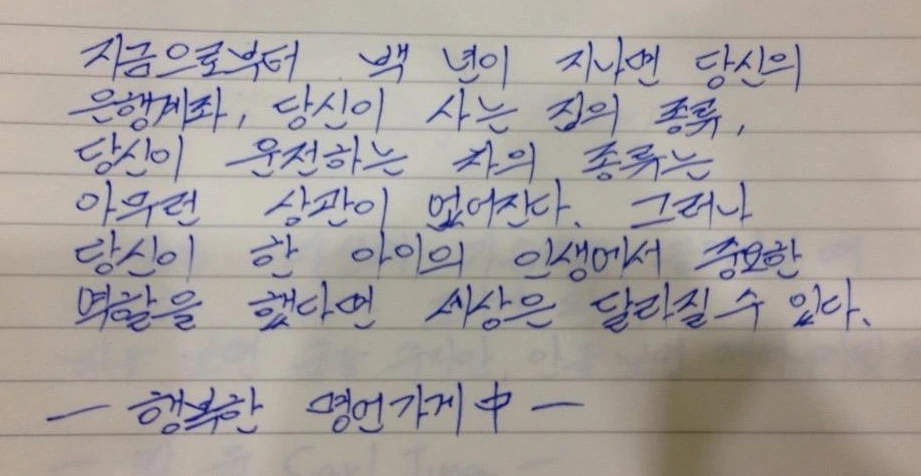 지금으로부터 백 년이 지나면 당신의
은행계좌, 당신이 사는 집의 종류,
당신이 운전하는 차의 종류는
아무런 상관이 없어진다. 그러나
당신이 한 아이의 인생에서 중요한
역할을 했다면 세상은 달라질 수 있다.
— 행복한 명언가게 中 —